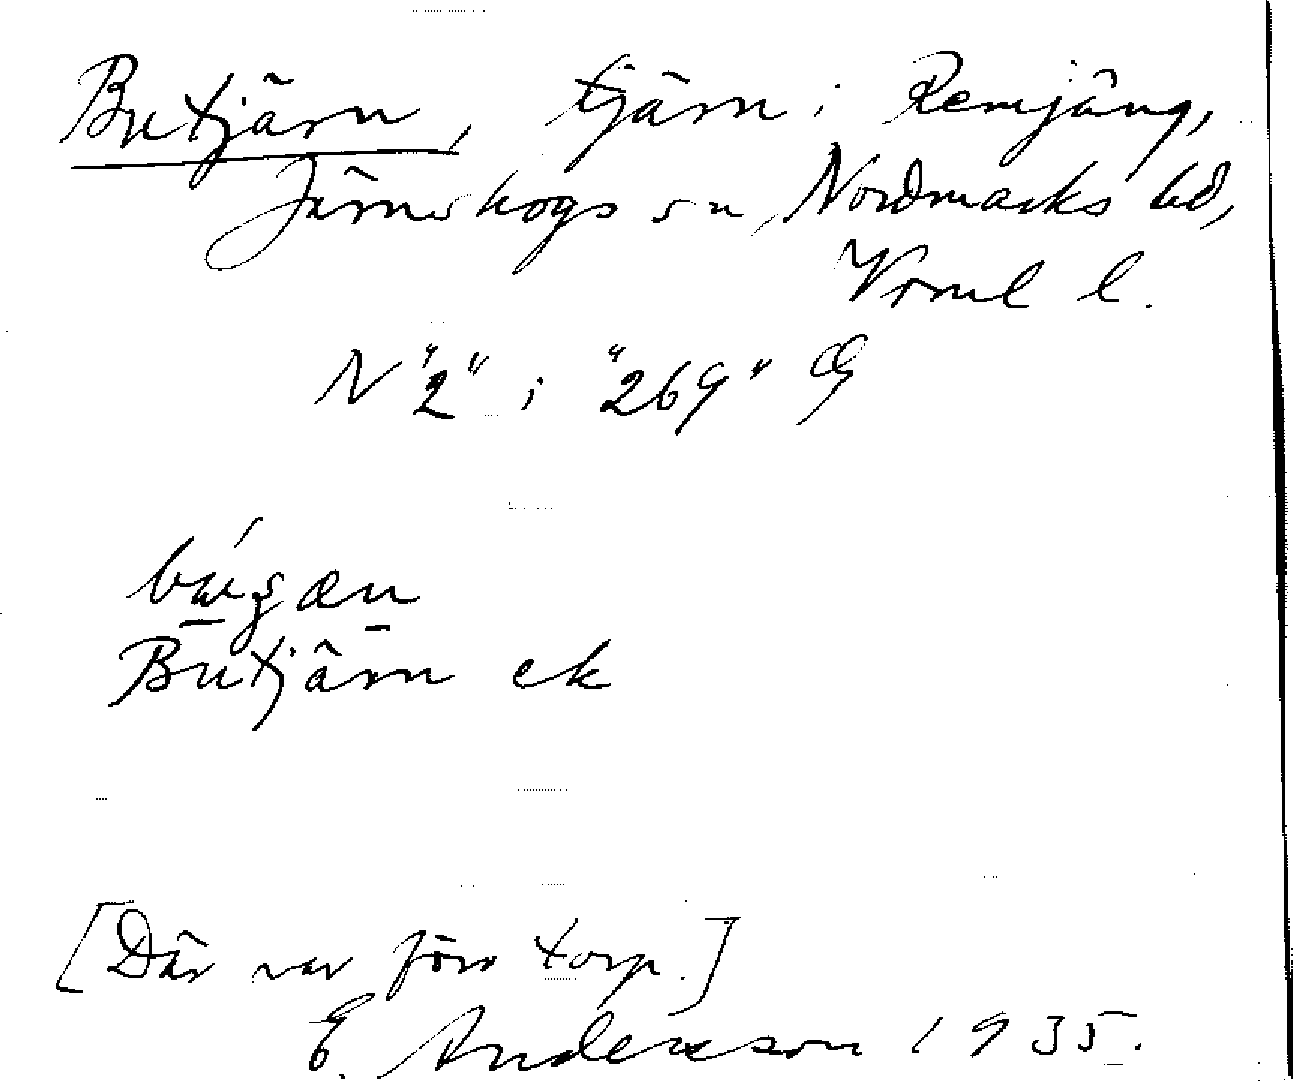 Butjärn, tjärn i Remjäng,
Järnskogs sn, Nordmarks hd,
Vrml l.
N "2" i "269" Œ
Butjärn ek
[Där var förr torp.]
E. Andersson 1935.